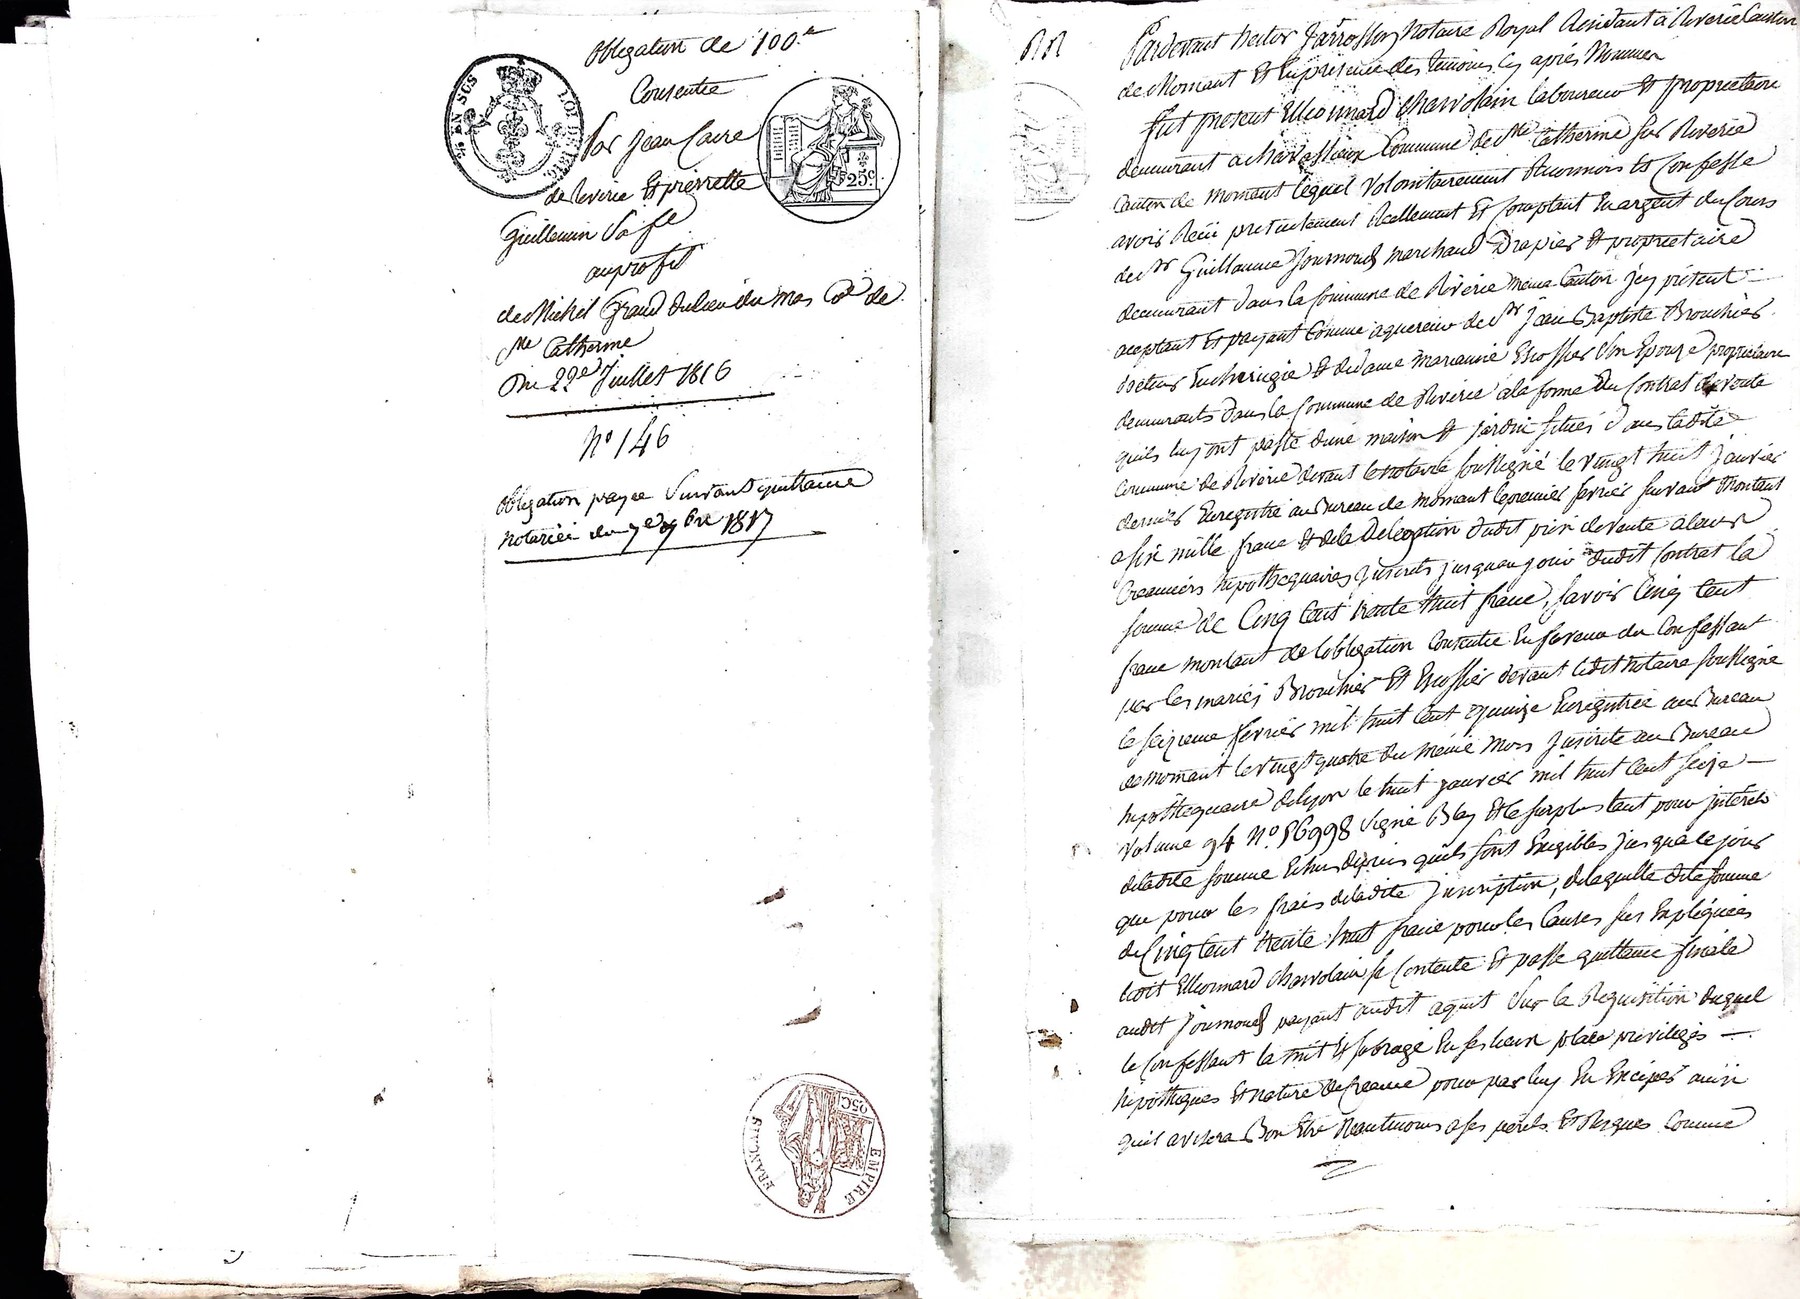 obligation de 100.tt
Consentie
par jean Caire
de Riverie Et pierrette
Guillemin Sa fe
au profit
de Michel Grand du lieu du mas Cne de
Ste Catherine
Du 22e juillet 1816
No 146
obligation payée Suivant quittance
notariée du 7e 9bre 1817
EN SUS
LOI DE 1816
25c.
EMPIRE
FRANÇAIS
25C
Pardevant hector jarrossoy Notaire Royal Residant à Riverie Canton
de Mornant Et En presence des temoins Cy après Nommés
fut present Ettiennard Charvolain laboureur Et proprietaire
demeurant a Commune de Ste Catherine sur Riverie
Canton de mornant lequel Volontairement Reconnois Et Confesse
avoir Reçu presentement Reellement Et Comptant En argent du Cours
de Sr Guillaume journoud marchand Drapier Et proprietaire
demeurant dans la Commune de Riverie même Canton jcy présent
aceptant Et payant Comme aquereur de Sr jean Baptiste Brouchier
docteur En chirugie Et de dame marianne Escoffier Son Epouze propriétaire
demeurants dans la Commune de Riverie a la forme Du Contrat de vente
quils luy ont passé dune maison Et jardin situés dans ladite
Commune de Riverie devant le notaire soussigné le vingt huit janvier
dernier Enregistré au Bureau de mornant le premier fevrier suivant Montant
a six mille franc Et de la Delegation dudit prix de vente a leurs
Creanciers hipothequaires jnscrits jusquau jour dudit Contrat la
somme de Cinq Cent trente huit franc, savoir Cinq Cent
franc montant de lobligation Consentie En faveur du Confessant
par les mariés Brouchier Et Escoffier devant ledit notaire soussigné
le seizieme fevrier mil huit Cent quinze Enregistrée au Bureau
de mornant le vingt quatre du même mois jnscrite au Bureau
hipothequaire de lyon le huit janvier mil huit Cent seize
Volume 94 No. 56998 Signé Bley Et le surplus tant pour jntérets
de ladite somme Echus depuis quils sont Exigibles jusquà le jour
que pour les frais de ladite jnscription, de laquelle dite somme
de Cinq Cent trente huit franc pour les Causes sus Expliquées
ledit Ettiennard Charvolain se Contente Et passe quittance finale
audit journoud payant audit aquit Sur la Requisition duquel
le Confessant la mit Et subrogé En ses lieux place privileges
hipotheques Et nature de Creance pour par luy En Exciper ainsi
quil avisera Bon Etre Neantmoins a ses perils Et Risques Comme